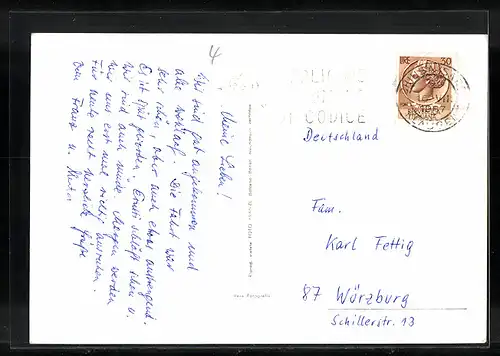 4
Meine Lieben!
Wir sind gut angekommen und
alle wohlauf. Die Fahrt war
sehr schön aber auch etwas anstrengend.
Es ist spät geworden, schläft schon u.
wir sind auch müde. Morgen werden
wir uns erst mal richtig ausruhen.
Für heute recht herzliche Grüße
Franz u.
LIRE 30
CODICE
Deutschland
Fam.
Karl Fettig
87 Würzburg
Schillerstr. 13
Vera Fotografia